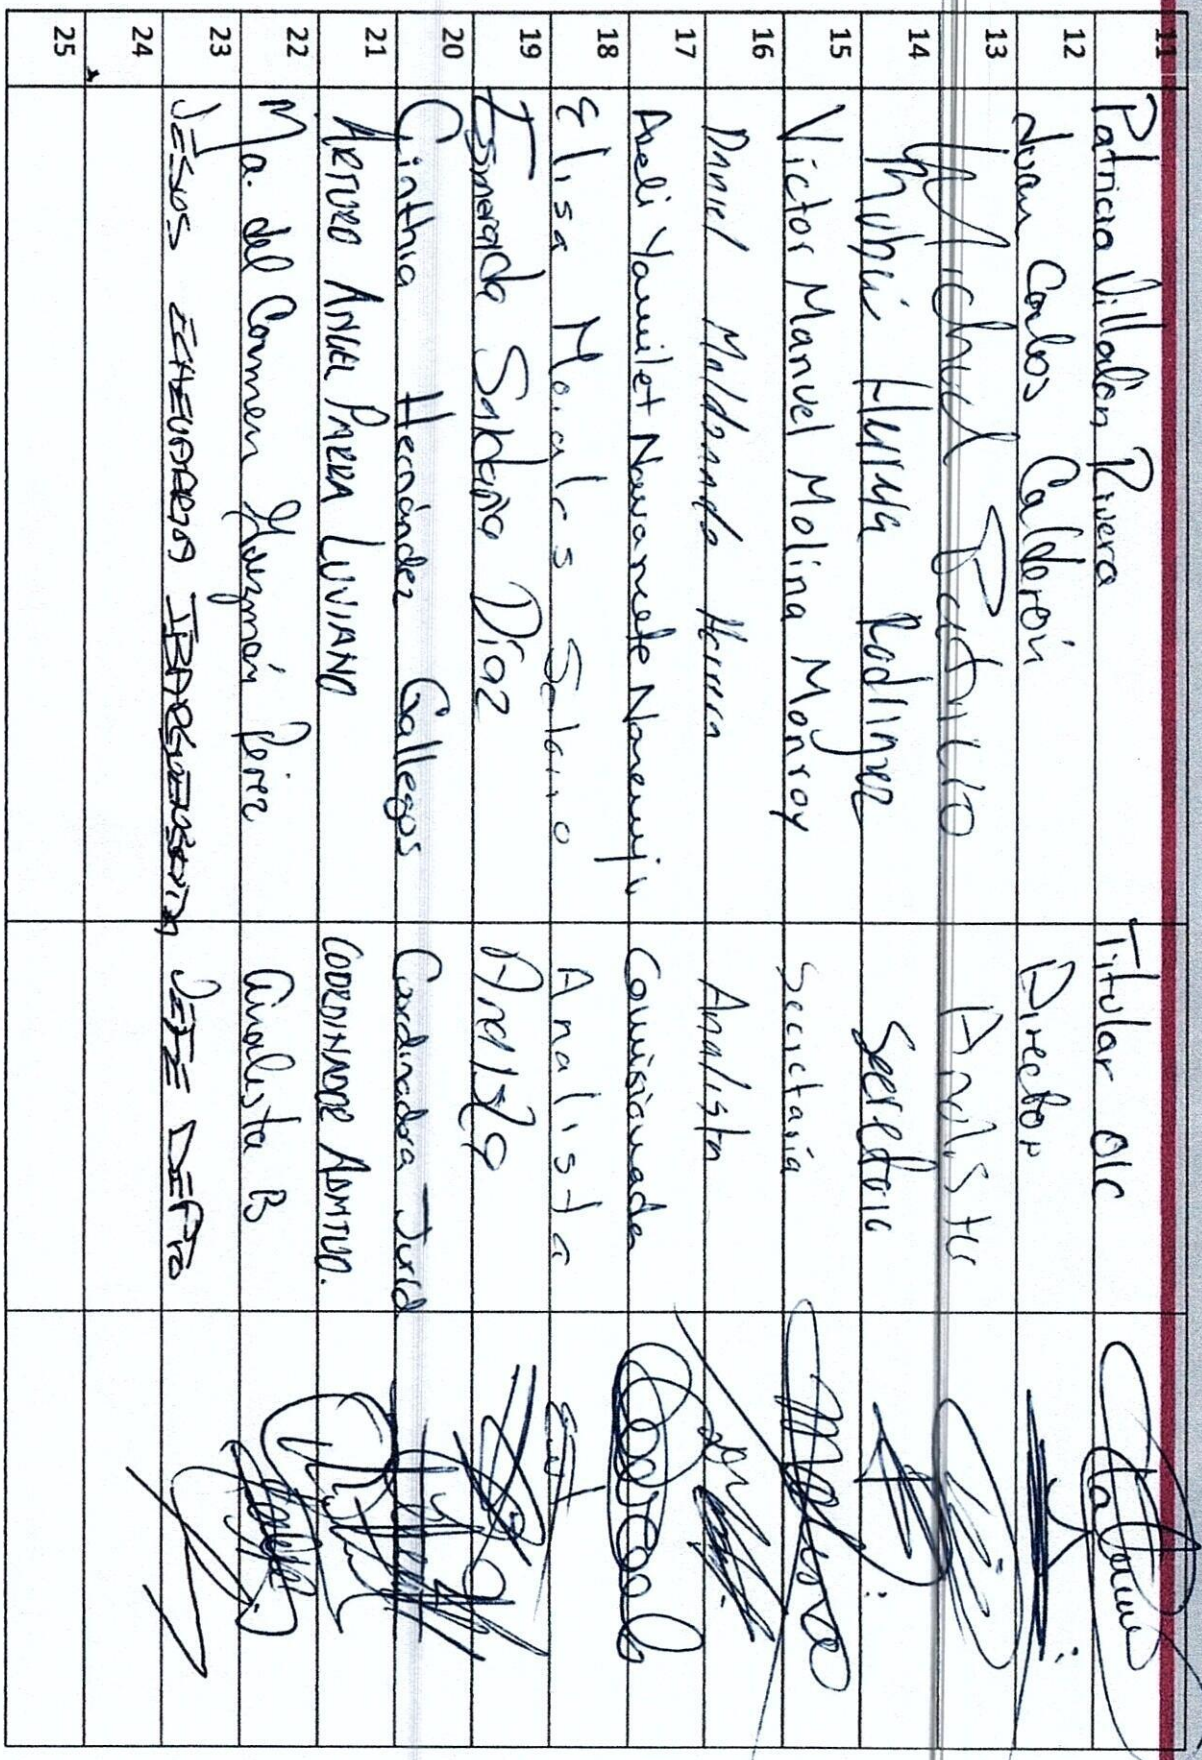 11 Patricia Villalón Rivera Titular OIC
12 Juan Carlos Calderón Director
13 Michael Patricio Analista
14 Rodríguez Secretaria
15 Victor Manuel Molina Monroy Secretaría
16 Daniel Maldonado Herrera Analista
17 Areli Yamilet Navarrete Comisionada
18 Elisa Morales Solano Analista
19 Esmeralda Saldaña Díaz
20 Cinthia Hernández Gallegos Coordinadora Juríd
21 ARTURO ANGEL PARRA LUVIANO COORDINADOR ADMTVO.
22 Ma. del Carmen Guzmán Pérez analista B
23 JESUS JEFE DEPTO
24
25